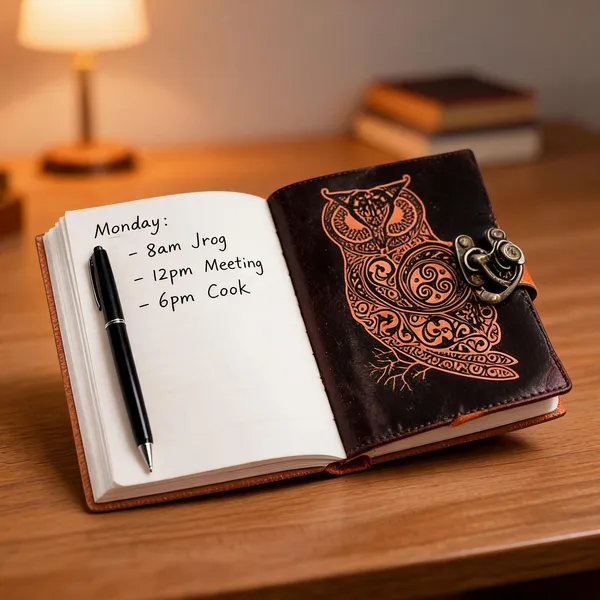 Monday:
- 8am Jrog
- 12pm Meeting
- 6pm Cook